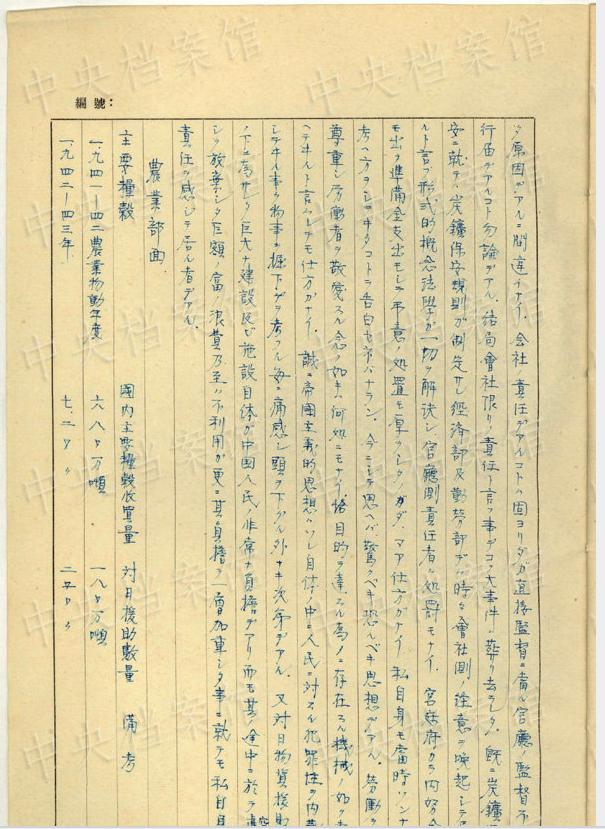 編號：
ク原因ガアルニ間違イナイ。会社ノ責任デアルコトハ固ヨリダガ直接監督ニ當ル官廳ノ監督不
行届デアルコト勿論デアル。結局會社限リノ責任ト言フ事デコノ大事件ハ葬リ去ラレタ。既ニ炭鑛
安ニ就テハ炭鑛保安規則ガ制定サレ経済部及勤労部デハ時々會社側ノ注意ヲ喚起シテ
ルト言フ形式的概念法學ガ一切ヲ解決シ官廳側責任者ノ処罰モナイ。宮廷府カラ内努金
モ出シ準備金支出モシテ弔意ノ処置モ厚クシタノダカラ、マア仕方ガナイ 私自身モ當時ソンナ
考ヘ方ヲシテキタコトヲ告白セネバナラン。今ニシテ思ヘバ驚クベキ恐ルベキ思想デアル。労働ヲ
尊重シ労働者ヲ敬愛スル念ノ如キハ何処ニモナイ。目的ヲ達スル為ノニ存在スル機械ノ如ク
ヘテキルト言ハレテモ仕方ガナイ。誠ニ帝國主義的思想ハソレ自体ノ中ニ人民ニ対スル犯罪性ヲ内
シテキル事ヲ物事ヲ掘下ゲテ考フル毎ニ痛感シ頭ヲ下ゲル外ナキ次第デアル。又対日物資援助
ノ下ニ為サレタ巨大ナ建設及ビ施設自体ガ中国人民ノ非常ナ負擔デアリ而モ其ノ途中ニ於テ
シク放棄シタ巨額ノ富ノ浪費乃至ハ不利用ガ更ニ其ノ負擔ヲ一層加重シタ事ニ就テモ私自
責任ヲ感ジテ居ル者デアル。
農業部面
主要糧穀 國内主要糧穀收買量 対日援助數量 備考
一九四一—四二農業物動年度 六八〇万噸 一八〇万噸
一九四二—四三年 七二〇〃 二五〇〃
中央档案馆
中央档案馆
中央档案馆
中央档案馆